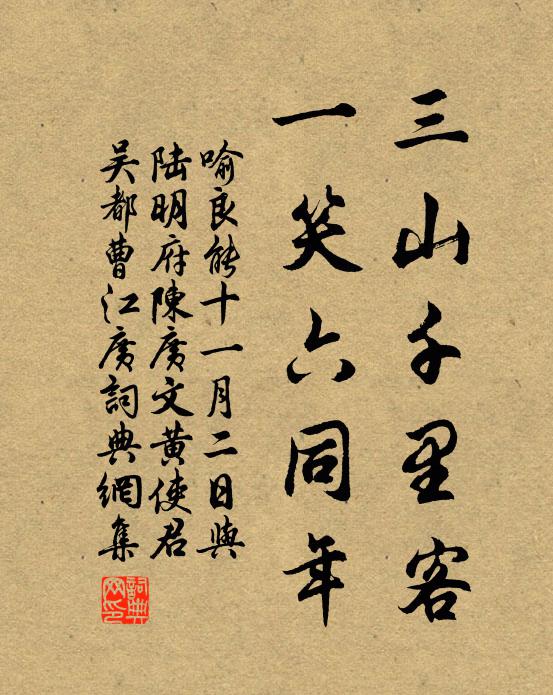 三山千里客
一笑六同年
喻良能十一月二日與
陆明府陳廣文黃使君
吴都曹江廣詞典網集
詞典网印